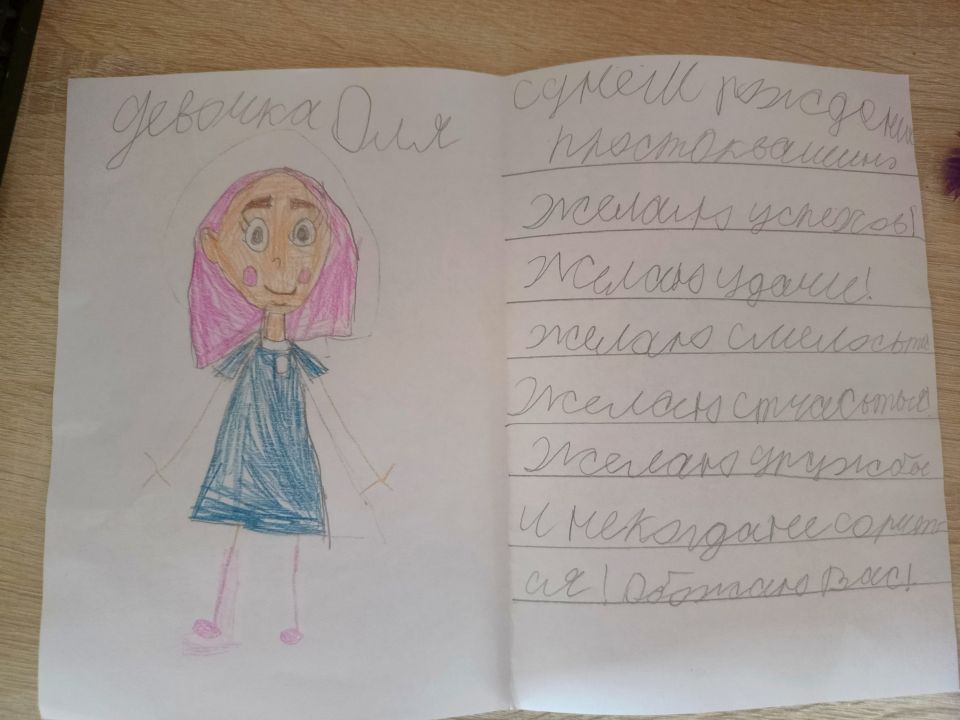 девочка Оля
сднём рождения
простоквашино
желаю успехов!
Желаю удачи!
желаю смелосьти
Желаю стчасьтья!
Желаю дружбы
и некогдане сорит
ся! Обожаю Вас!